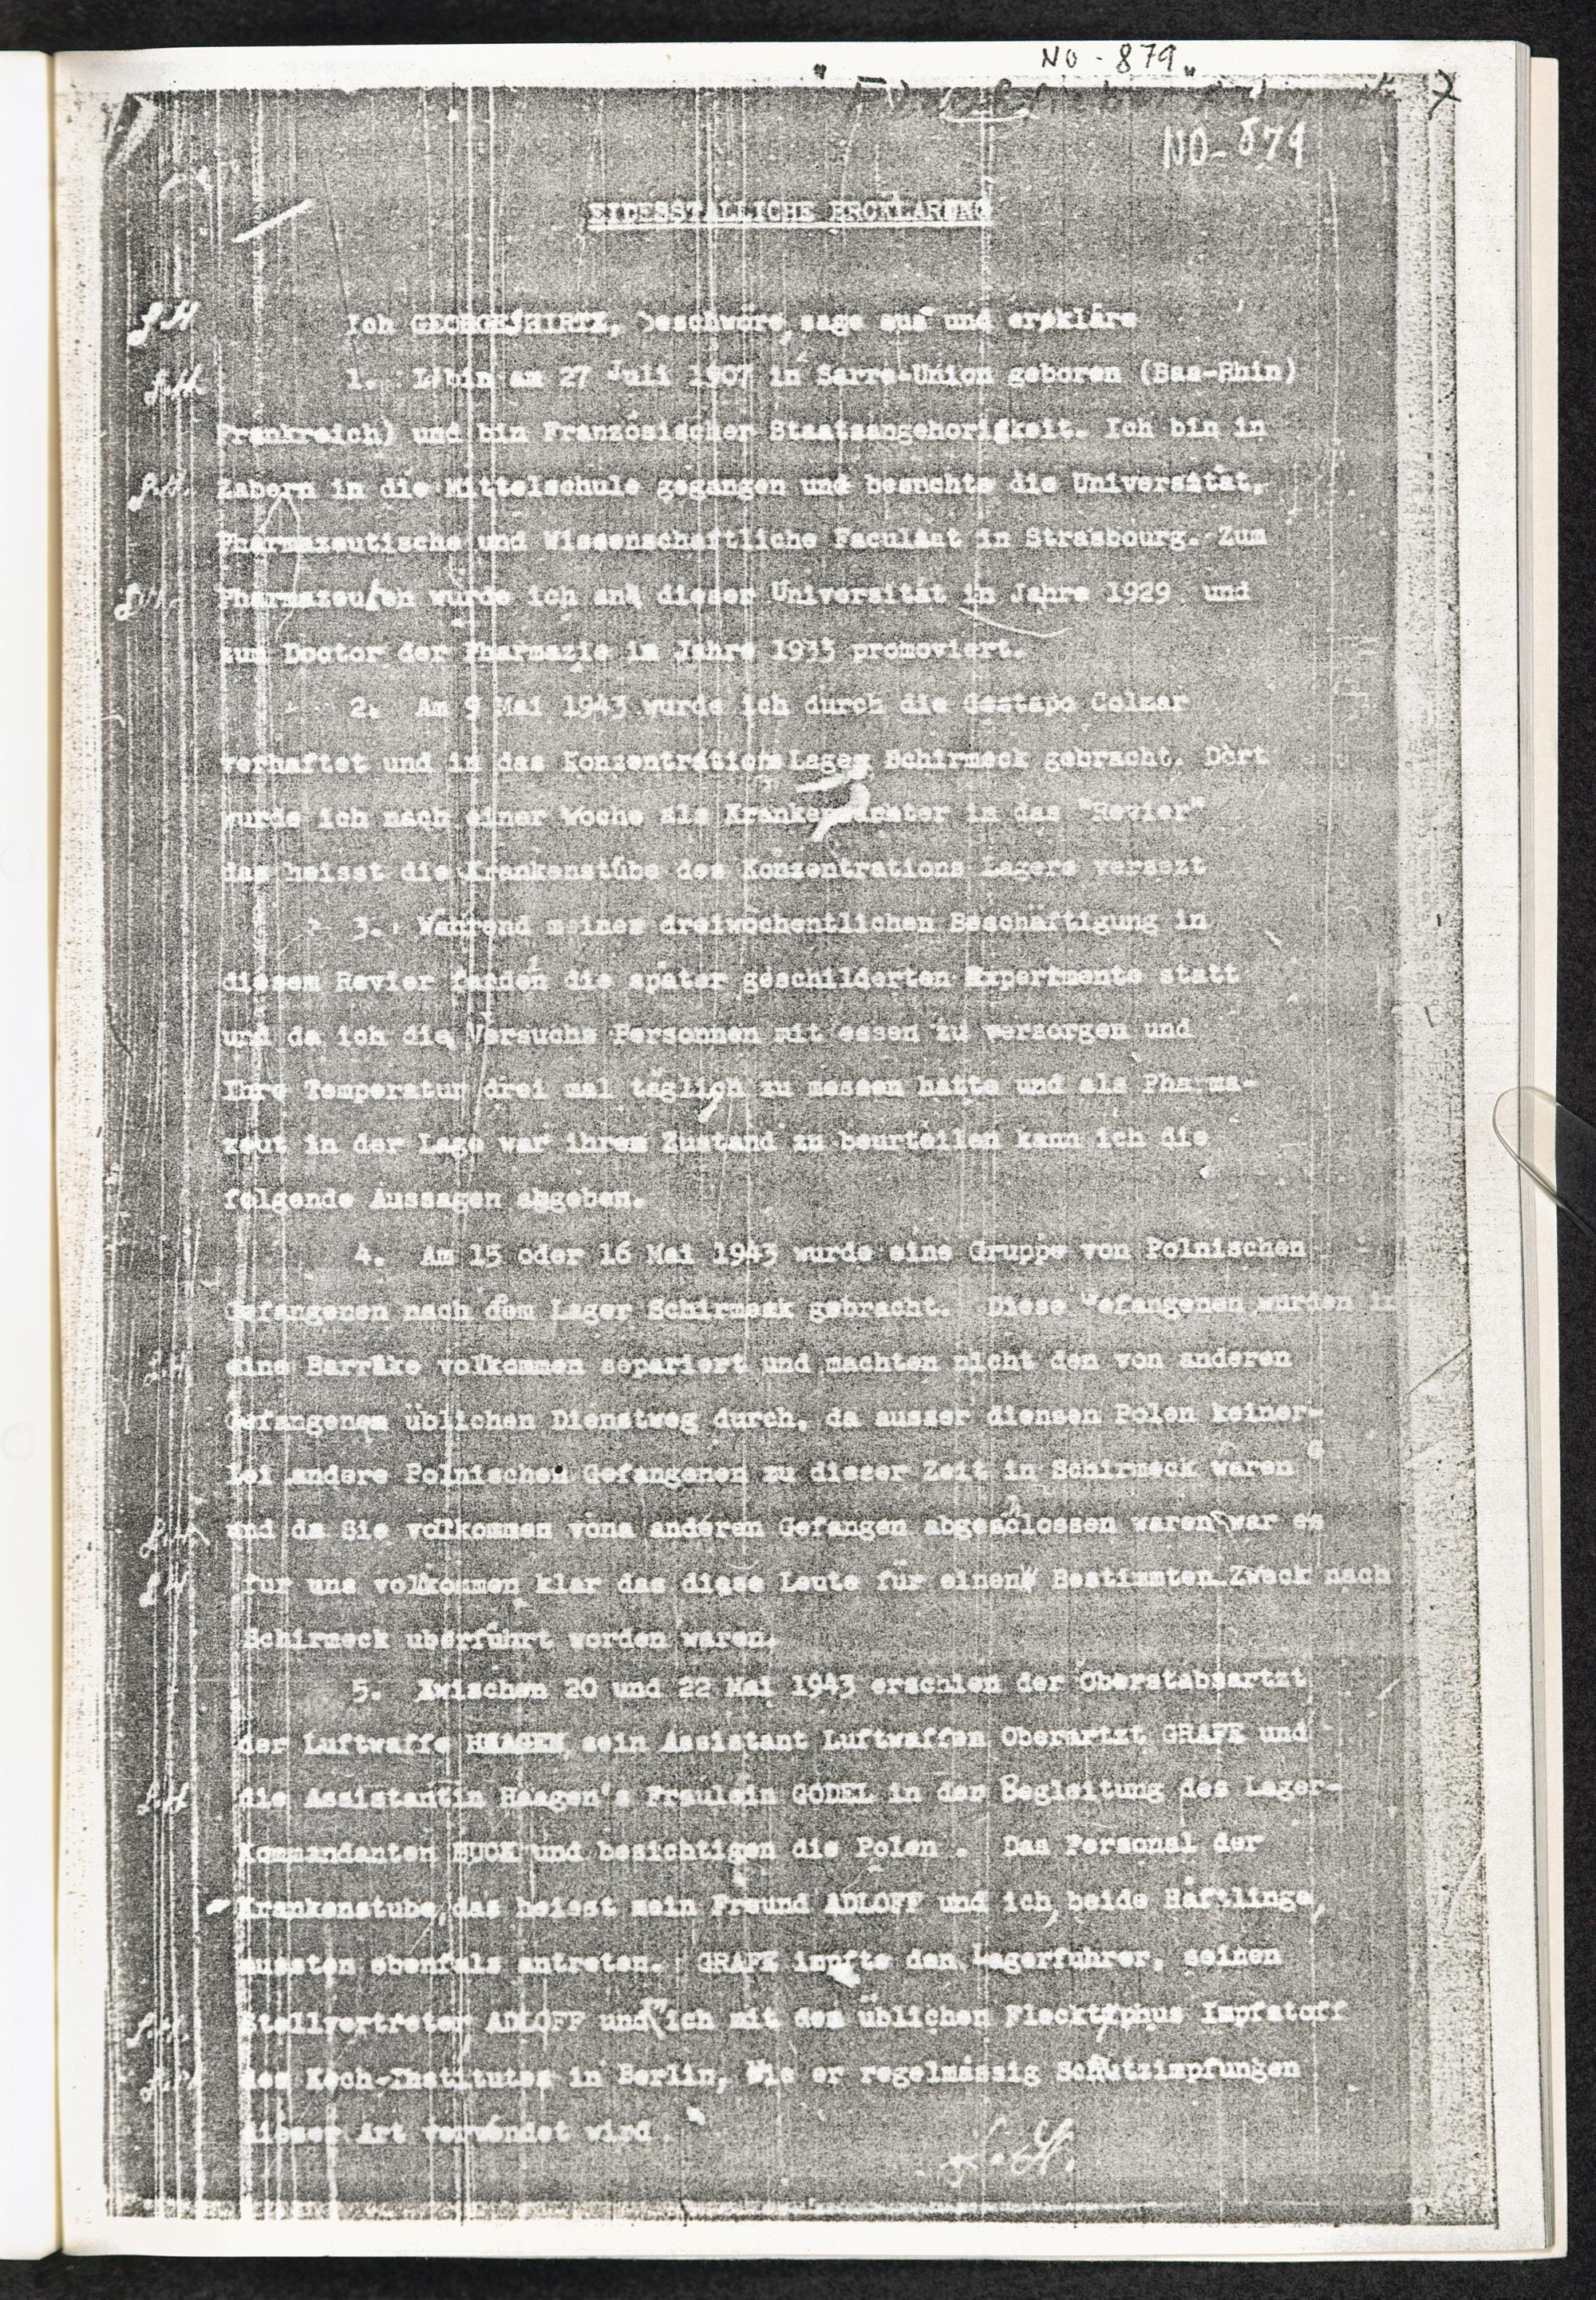 NO-879
NO-879
EIDESSTALLICHE ERCKLARUNG
Ich GEORGES HIRTZ, beschwöre, sage aus und erkläre
1. Ich bin am 27 Juli 1907 in Sarre-Union geboren (Bas-Rhin)
Frankreich) und bin Französischer Staatsangehorigkeit. Ich bin in
Zabern in die Mittelschule gegangen und besuchte die Universität,
Pharmazeutische und Wissenschaftliche Facultät in Strasbourg. Zum
Pharmazeuten wurde ich an dieser Universität in Jahre 1929 und
zum Doctor der Pharmazie in Jahre 1933 promoviert.
2. Am 9 Mai 1943 wurde ich durch die Gestapo Colmar
verhaftet und in das Konzentrations Lager Schirmeck gebracht. Dort
wurde ich nach einer Woche als in das "Revier"
das heisst die Krankenstübe des Konzentrations Lagers versezt
3. Während meiner dreiwochentlichen Beschäftigung in
diesem Revier fanden die später geschilderten Experimente statt
und da ich die Versuchs Personnen mit essen zu versorgen und
Ihre Temperatur drei mal täglich zu messen hatte und als Pharma-
zeut in der Lage war ihren Zustand zu beurteilen kann ich die
folgende Aussagen abgeben.
4. Am 15 oder 16 Mai 1943 wurde eine Gruppe von Polnischen
Gefangenen nach dem Lager Schirmeck gebracht. Diese Gefangenen wurden in
eine Barrake vollkommen separiert und machten nicht den von anderen
Gefangenen üblichen Dienstweg durch, da ausser diensen Polen keiner-
lei andere Polnischen Gefangenen zu dieser Zeit in Schirmeck waren
und da Sie vollkommen von anderen Gefangen abgeschlossen waren war es
fur uns vollkommen klar das diese Leute für einen Bestimmten Zweck nach
Schirmeck uberführt worden waren.
5. Zwischen 20 und 22 Mai 1943 erschien der Oberstabsartzt
der Luftwaffe HAAGEN sein Assistant Luftwaffen Oberartzt GRAFE und
die Assistantin Haagen's Fraulein GODEL in der Begleitung des Lager-
Kommandanten BUCK und besichtigen die Polen. Das Personal der
Krankenstube, das heisst mein Freund ADLOFF und ich, beide Häftlinge,
mussten ebenfals antreten. GRAFE impfte den Lagerfuhrer, seinen
Stellvertreter ADLOFF und ich mit dem üblichen Flecktyphus Impfstoff
des Koch-Institutes in Berlin, Wie er regelmässig Schutzimpfungen
dieser Art verwendet wird.
G.H.